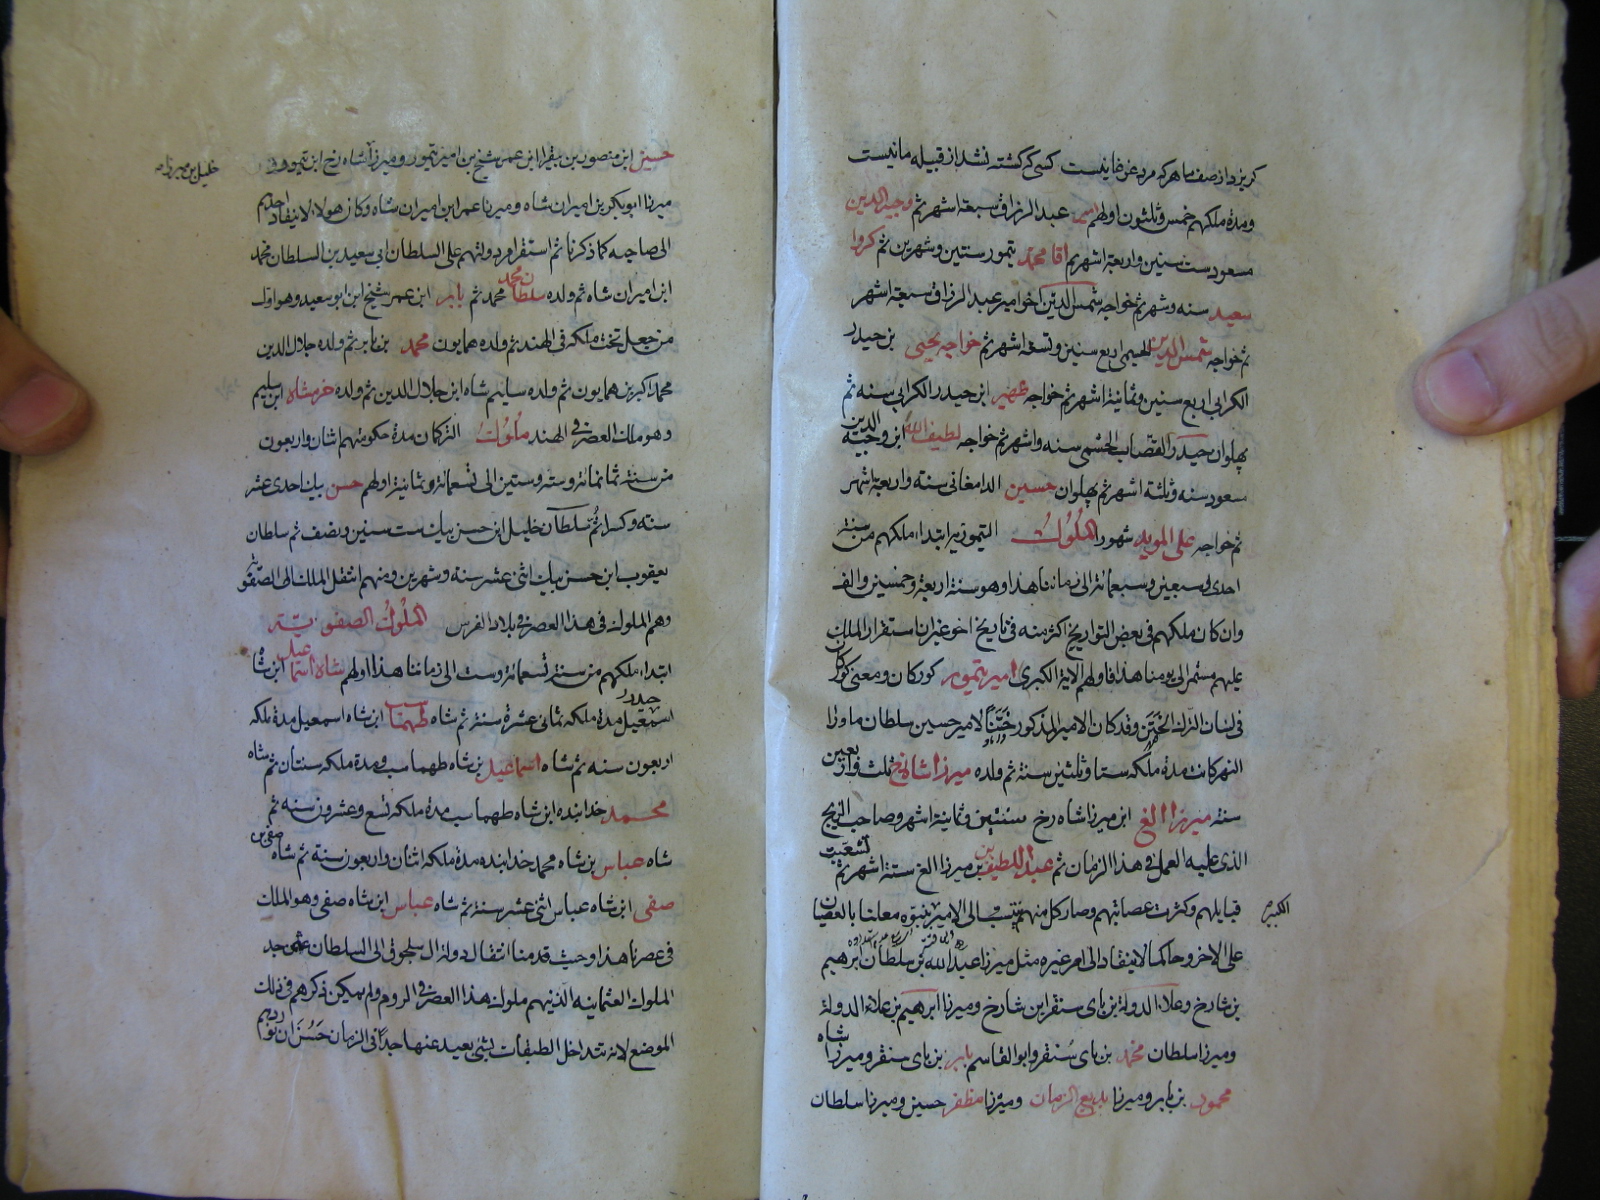 كريزد از صف ما هر كه مرد غوغا نيست كسى كه كشته نشد از قبيله ما نيست
ومدة ملكهم خمس وثلثون اولهم امير عبد الرزاق سبعة اشهر ثم وجيه الدين
مسعود ست سنين واربعة اشهر ثم اقا محمد تيمور سنتين وشهرين ثم كروا
سعيد سنه وشهر ثم خواجه شمس الدين اخو امير عبد الرزاق سبعة اشهر
ثم خواجه شمس الدين اربع سنين وتسعة اشهر ثم خواجه يحيى بن حيدر
الكرابى اربع سنين وثمانية اشهر ثم خواجه ظهير ابن حيدر الكرابى سنه ثم
پهلوان حيدر القصاب الحشمى سنه واشهر ثم خواجه لطيف الله ابن وجيه الدين
مسعود سنه وثلثة اشهر ثم پهلوان حسين الدامغانى سنه واربعة اشهر
ثم خواجه على المويد شهورا الملوك التيمورية ابتداء ملكهم من سنة
احدى وسبعين وسبعمائة الى زماننا هذا وهو سنة اربعة وخمسين والف
وان كان ملكهم فى بعض التواريخ اكثر منه فى تاريخ اخر غير ان استقرار الملك
عليهم مستمر الى يومنا هذا فاولهم الاية الكبرى امير تيمور كوركان ومعنى كوركان
فى لسان الترك الختن وقد كان الامير المذكور ختنا لامير حسين سلطان ماورا
النهر كانت مدة ملكه ستا وثلثين سنة ثم ولده ميرزا شاه رخ ثلث واربعين
سنه ميرزا الغ ابن ميرزا شاه رخ سنتين وثمانية اشهر وصاحب الزيج
الذى عليه العمل فى هذا الزمان ثم عبد اللطيف بن ميرزا الغ ستة اشهر ثم تشعبت
قبايلهم وكثرت عصاتهم وصار كل منهم ينتسب الى الامير بنبوه معلنا بالعصيان
الكبير
على الاخر وحاكما لا ينقاد الى امر غيره مثل ميرزا عبد الله بن سلطان ابرهيم
بن شارخ وعلاء الدولة بن باى سنقر ابن شارخ وميرزا ابرهيم بن علاء الدولة
وميرزا سلطان محمد بن باى سنقر وابو القاسم بابر بن باى سنقر وميرزا شاه
محمود بن بابر وميرزا بديع الزمان وميرزا مظفر حسين وميرزا سلطان
حسين ابن منصور بن بيقرا ابن عمر شيخ بن امير تيمور وميرزا شاه رخ ابن تيمور
خليل بن ميرانشاه
ميرزا ابوبكر بن اميران شاه وميرزا عمر ابن اميران شاه وكان هولاء لا ينقاد احدهم
الى صاحبه كما ذكرنا ثم استقر امر دولتهم على السلطان ابى سعيد بن السلطان محمد
ابن اميران شاه ثم ولده سلطان محمد ثم بابر ابن عمر شيخ ابن ابو سعيد وهو اول
من جعل تخت ملكه فى الهند ثم ولده همايون محمد بن بابر ثم ولده جلال الدين
محمد اكبر بن همايون ثم ولده سليم شاه ابن جلال الدين ثم ولده خرمشاه ابن سليم
وهو ملك العصر فى الهند ملوك التركان مدة حكومتهم اثنان واربعون
من سنة ثمانمائة وسته وستين الى تسعمائة وثمانية اولهم حسن بيك احدى عشر
سنه وكسرا ثم سلطان خليل ابن حسن بيك ست سنين ونصف ثم سلطان
يعقوب ابن حسن بيك اثنى عشر سنه وشهرين ومنهم انتقل الملك الى الصفويه
وهم الملوك فى هذا العصر فى بلاد الفرس الملوك الصفويّة
ابتداء ملكهم من سنة تسعمائة وست الى زماننا هذا اولهم شاه اسماعيل ابن شاه
حيدر مدة ملكه ثمانى عشرة سنة ثم شاه طهماسب ابن شاه اسمعيل مدة ملكه
اربعون سنه ثم شاه اسماعيل بن شاه طهماسب ومدة ملكه سنتان ثم شاه
محمد خدابنده ابن شاه طهماسب مدة ملكه تسع وعشرون سنه ثم
شاه عباس بن شاه محمد خدابنده مدة ملكه اثنان واربعون سنة ثم شاه
صفى ابن شاه عباس اثنى عشر سنة ثم شاه عباس ابن شاه صفى وهو الملك
فى عصرنا هذا وحيث قدمنا انتقال دولة ال سلجوق الى السلطان عثمن جد
الملوك العثمانيه الذينهم ملوك هذا العصر فى الروم ولم يمكن ذكرهم فى ذلك
الموضع لانه تتداخل الطبقات بشى بعيد عنها جدا فى الزمان حسن ان نوردهم